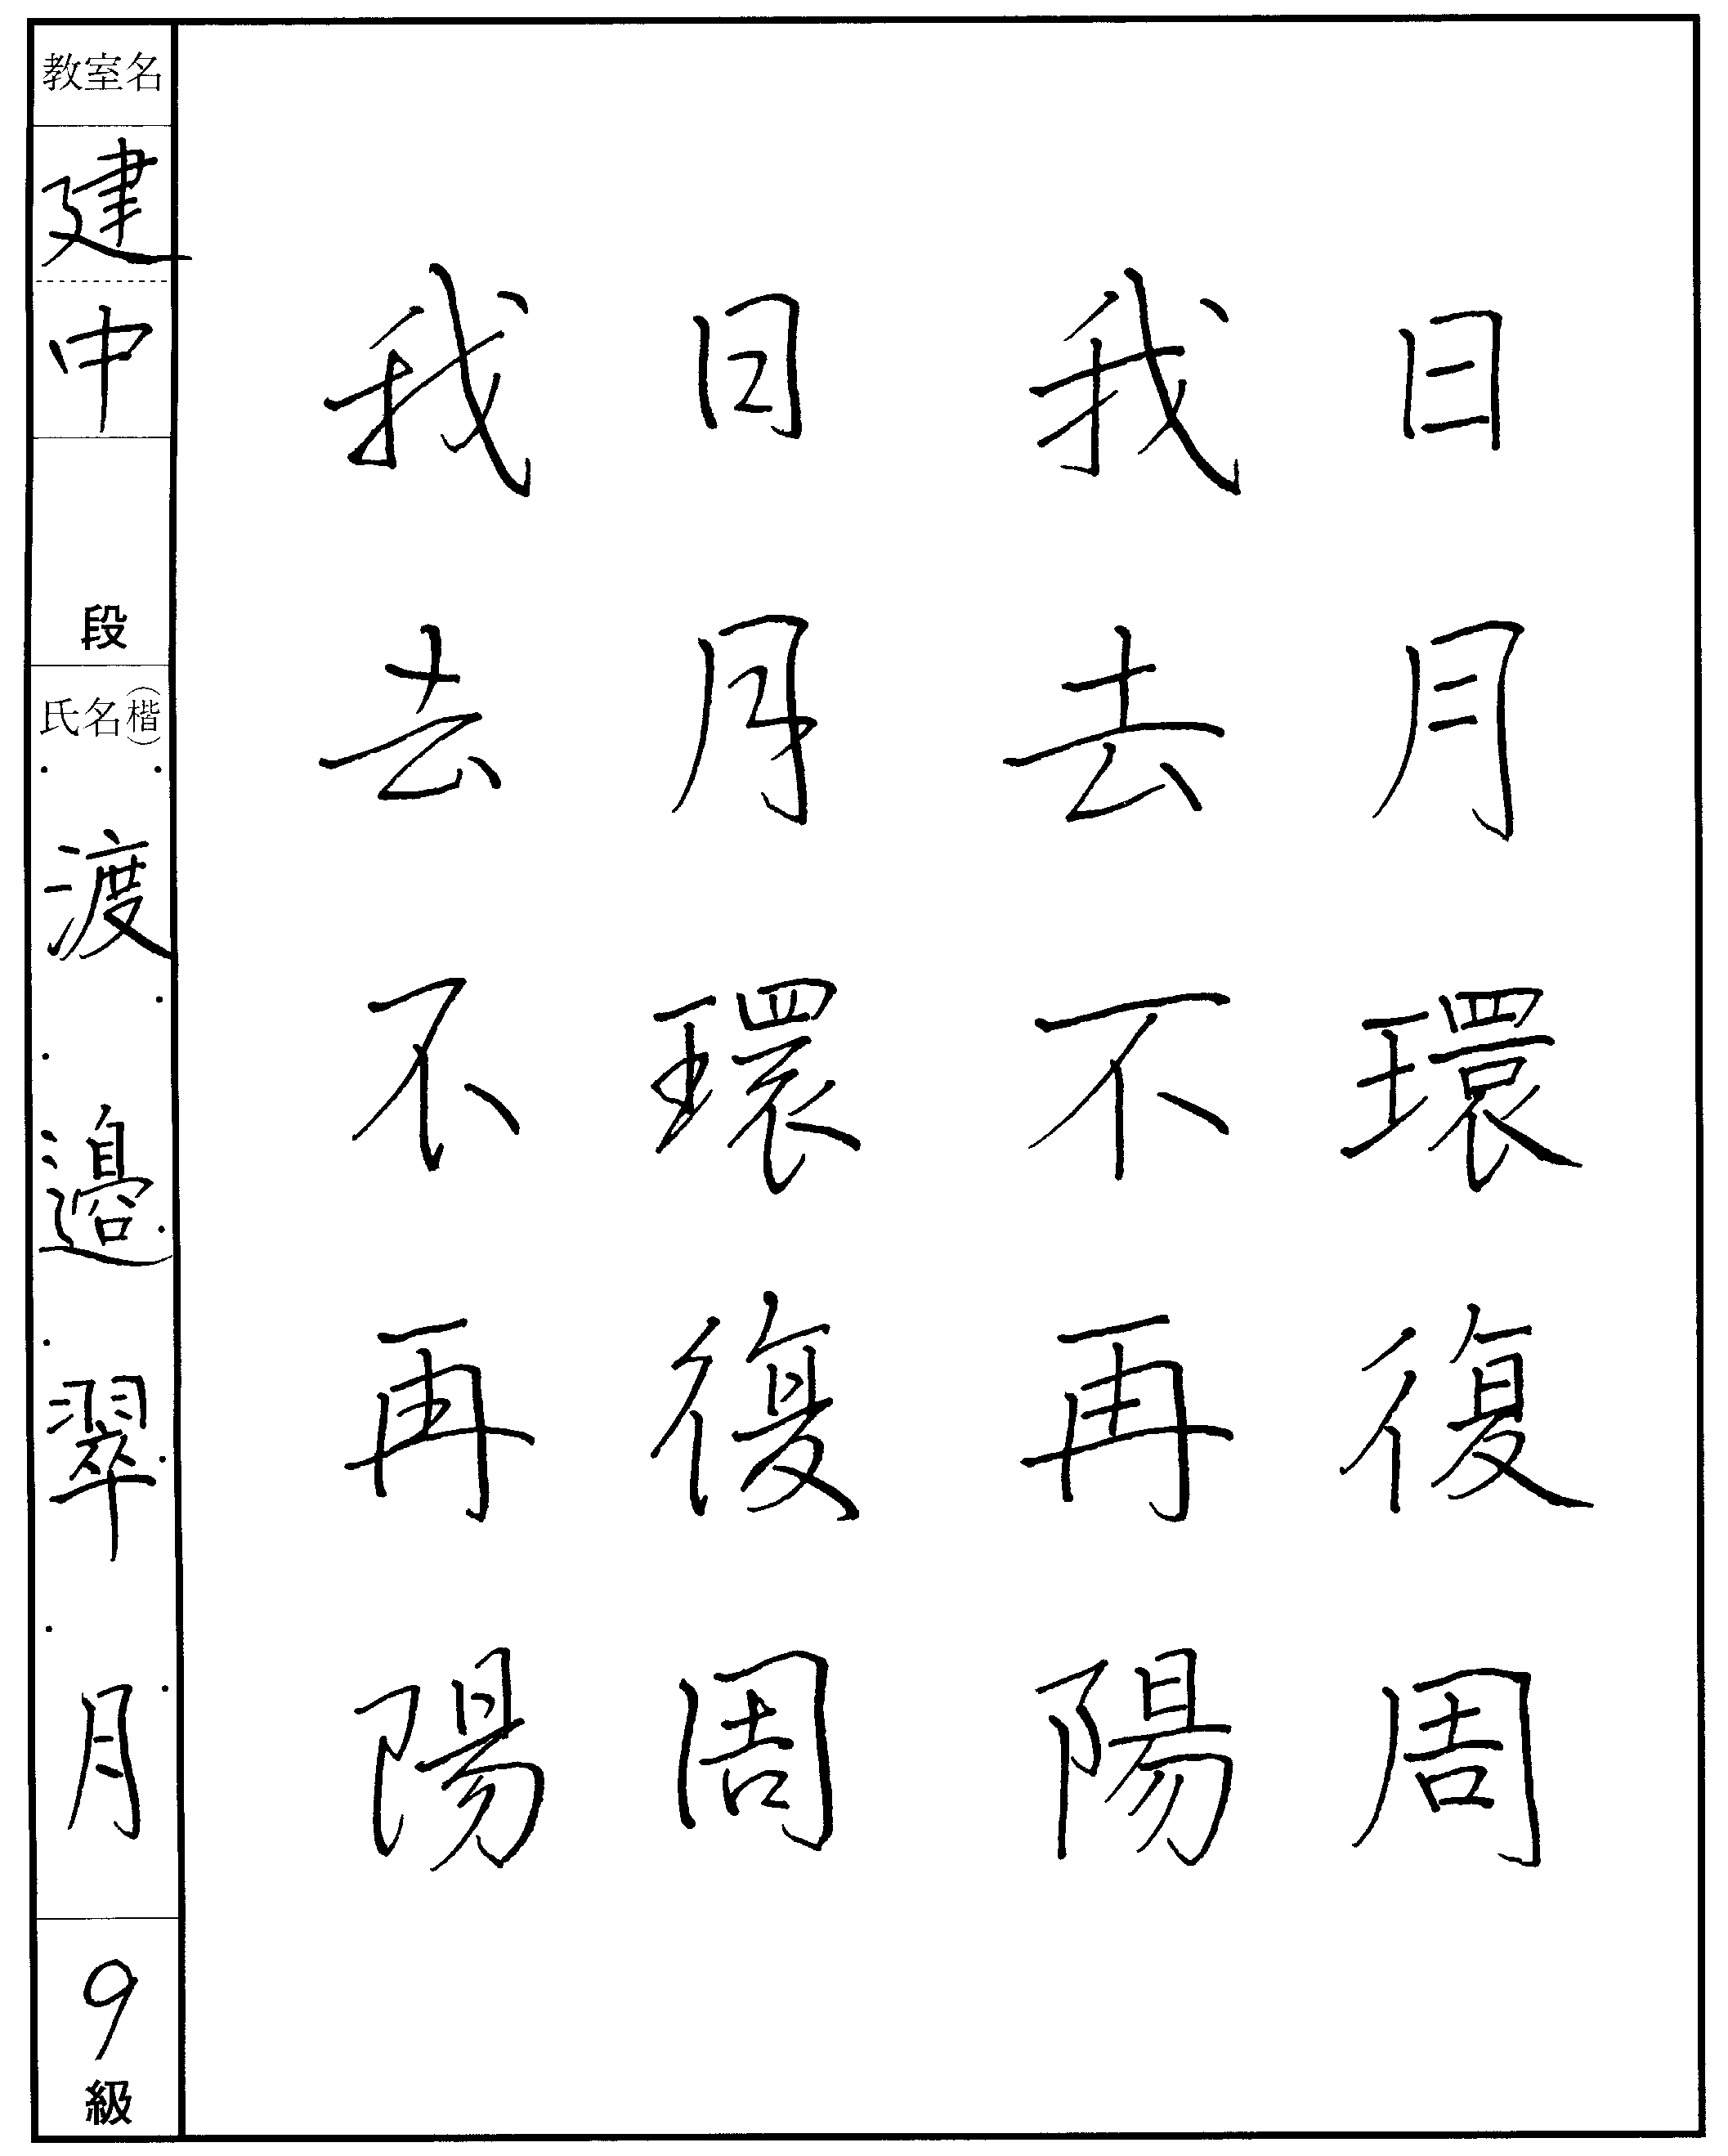 日月環復周
我去不再陽
日月環復周
我去不再陽
教室名
建中
段
氏名(楷)
渡邉翠月
9級